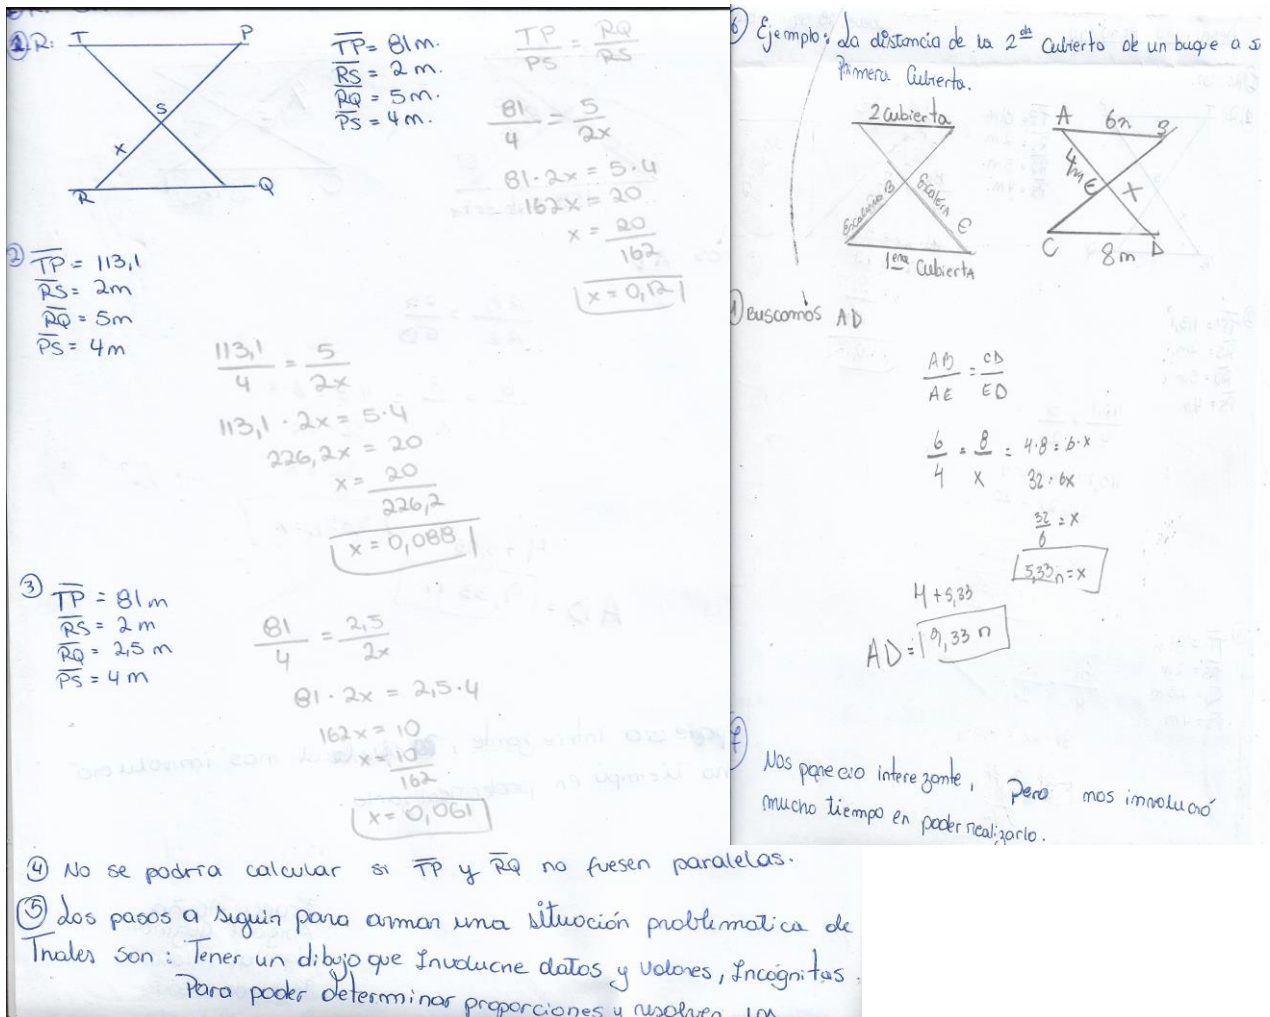 1 R:
T P
S
x
R Q
TP = 81 m.
RS = 2 m.
RQ = 5 m.
PS = 4 m.
TP/PS = RQ/RS
81/4 = 5/2x
81·2x = 5·4
162x = 20
x = 20/162
x = 0,12
2 TP = 113,1
RS = 2m
RQ = 5m
PS = 4m
113,1/4 = 5/2x
113,1 · 2x = 5·4
226,2x = 20
x = 20/226,2
x = 0,088
3 TP = 81 m
RS = 2 m
RQ = 2,5 m
PS = 4 m
81/4 = 2,5/2x
81 · 2x = 2,5·4
162x = 10
x = 10/162
x = 0,061
4 No se podría calcular si TP y RQ no fuesen paralelas.
5 Los pasos a seguir para armar una situación problematica de
Thales son: Tener un dibujo que Involucre datos y valores, Incógnitas.
Para poder determinar proporciones y resolver
6 Ejemplo: La distancia de la 2da Cubierta de un buque a s
Primera Cubierta.
2 cubierta
Escalera B
Escalera
E
1era Cubierta
A 6n B
4m E x
C 8m D
1 Buscamos AD
AB/AE = CD/ED
6/4 = 8/x = 4·8 = 6·x
32 = 6x
32/6 = x
5,33 n = x
4 + 5,33
AD = 9,33 n
7 Nos parecio interezante, pero nos involucró
mucho tiempo en poder realizarlo.